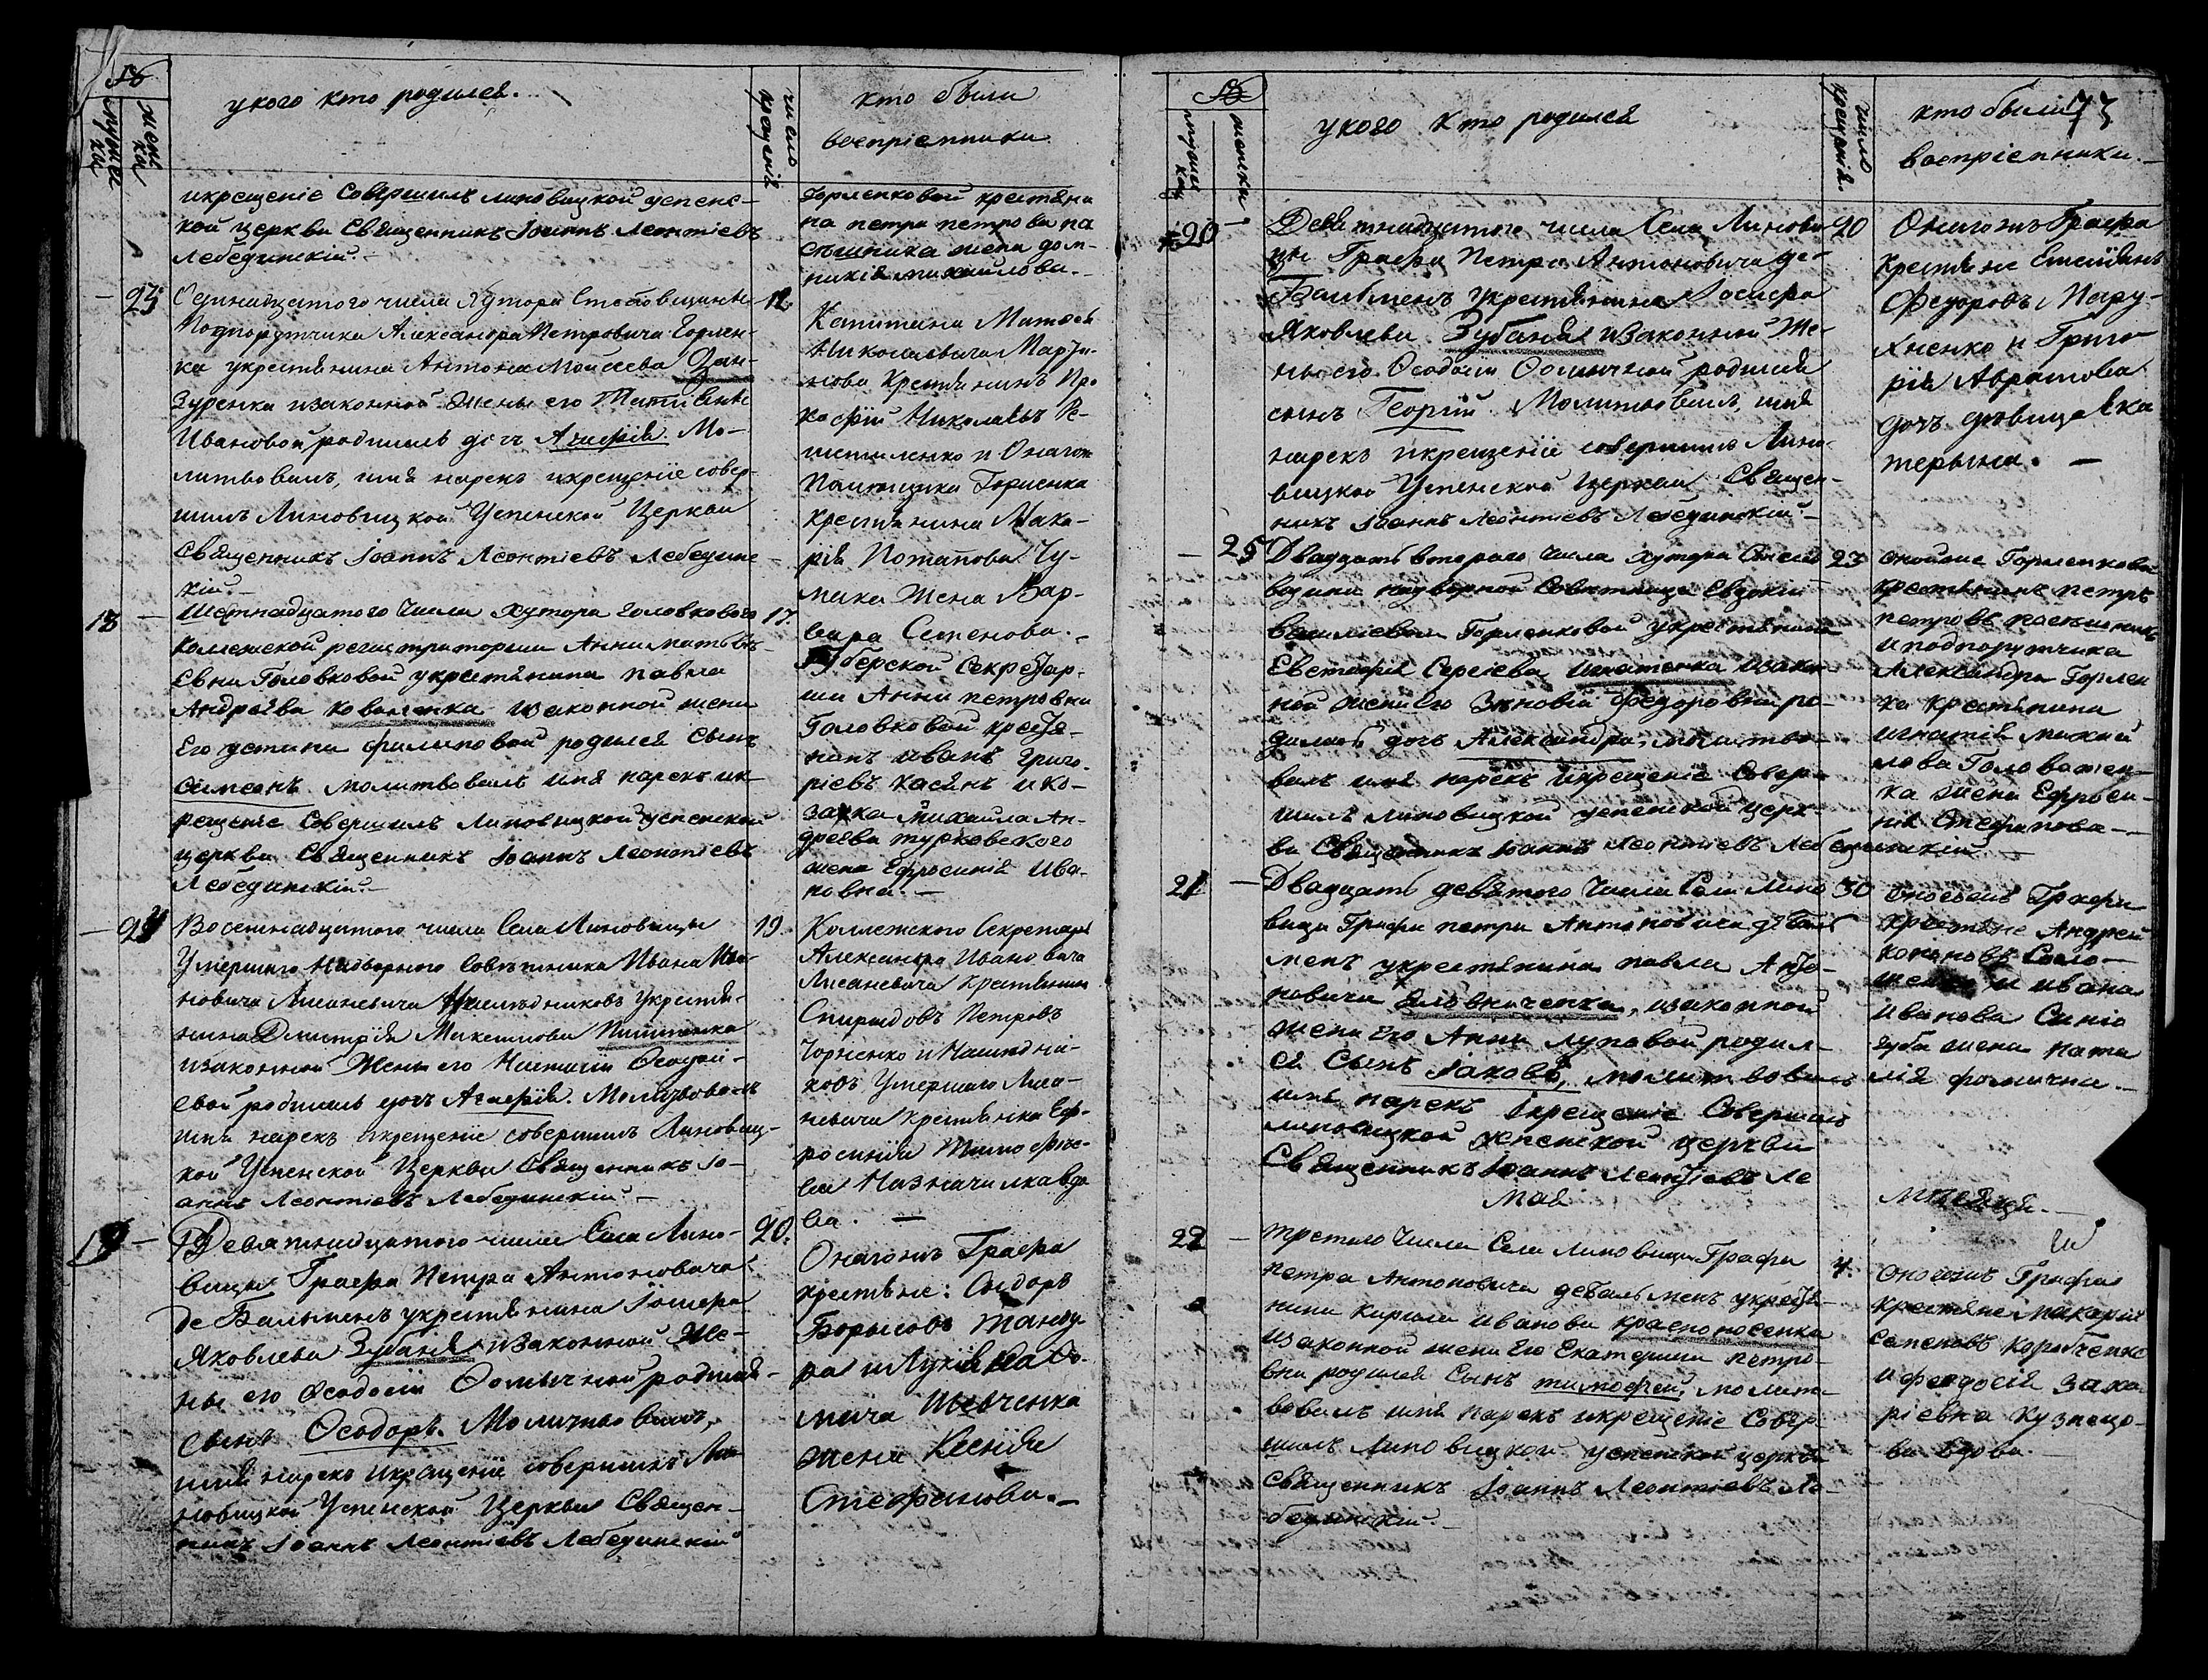 укого кто родился.
число крещенія
кто были
воспріемники
икрещеніе совершилъ линовицкой успенс-
кой церкви Священникъ Іоаннъ Леонтіевъ
Лебединскій.-
Горленковой крестяни
на петра петрова па
жена дом-
михайлова.-
12
Одинадцатого числа Хутора
Подпорутчика Александра Петровича Горлен-
ка укрестянина Антона Моисеева Дан-
зуренка изаконной жены его
Ивановой, родилась дочь Агафія. Мо-
литвовалъ, имя нарекъ икрещеніе совер-
шилъ Линовицкой Успенской Церкви
Священникъ Іоаннъ Леонтіевъ Лебединс-
кій.-
Капитана
Николаевича Марты-
нова Крестянинъ Про
кофій Николаевъ Ре-
и Оногож
Помѣщика Горленка
крестянина Мака-
рія Потапова Чу-
мака жена Вар-
вара Семенова.-
18 -
17.
Шетнадцатого числа хутора головкового
колежской регистраторши Анни матвѣ-
евни Головковой укрестянина павла
Андрѣева коваленка изаконной жени
Его устини филиповой родился сынъ
Симеонъ молитвовалъ имя нарекъ ик-
рещеніе Совершилъ Линовицкой успенской
церкви Священникъ Іоаннъ Леонтіевъ
Лебединскій.-
Губерской секретар-
ши Анни петровни
Головковой крестя-
нинъ иванъ григо-
ріевъ касянъ и ко-
зака Михаила Ан-
дреева турковского
жена Ефросинія Ива-
новна.-
19.
Восемнадцатого числа Села Линовицы
Умершего Надворного Совѣтника Ивана Ива-
новича Лисаневича Наслѣдниковъ укрестя-
нина Дмитрія
изаконной жены его
родилась дочь Агафія. Молитвовалъ
имя нарекъ икрещеніе совершилъ Линовиц-
кой Успенской Церкви Священникъ Іо-
аннъ Леонтіевъ Лебединскій.-
Коллежского Секретаря
Александра Ивановича
Лисаневича Крестянинъ
Петровъ
Чорненко и Наслѣдни-
ковъ Умершаго Лиса-
невича крестянка Еф-
росинія Тимофѣе-
ва вдо
ва. -
19 -
20.
Девятнадцатого числа Села Лино-
вицы Графа Петра Антоновича
де Бальменъ укрестянина Іосифа
Яковлева Зубаня изаконной же-
ны его Ѳеодосіи Ѳоминой, родился
сынъ Ѳеодоръ. Молитвовалъ,
имя нарекъ икрещеніе совершилъ Ли-
новицкой Успенской Церкви Священ-
никъ Іоаннъ Леонтіевъ Лебединскій
Оногожъ Графа
крестяне: Сидоръ
Борисовъ
ра и
Шевченка
жена Ксенія
Стефанова.-
73
укого кто родился
число крещенія.
кто были
воспріемники.-
20 -
20
Девятнадцатого числа Села Линови
цы Графа Петра Антоновича де-
Бальменъ укрестянина Іосифа
Яковлева Зубаня изаконной Же-
ны его Ѳеодосіи Ѳоминой родился
сынъ Георгій. Молитвовалъ, имя
нарекъ икрещеніе совершилъ Лино-
вицкой Успенской Церкви Священ-
никъ Іоаннъ Леонтіевъ Лебединскій.-
Оногожъ Графа
Крестяне
Федоровъ
и Григо
рія Абрамова
дочь дѣвица Ека
терына. -
- 25
23
Двадцать второго числа хутора
надворной совѣтници Евдокіи
Василіевни Горленковой укрестянина
Евстафія Сергіева Игнатенка изакон
ной жени его Зиновіи Федоровни ро-
дилась дочь Александра, молитво-
валъ имя нарекъ икрещеніе Совер-
шилъ линовицкой успенской церк-
ви Священникъ Іоаннъ Леонтіевъ Лебединскій.-
Горленковой
крестянинъ петръ
петровъ
иподпорутчика
Александра Горлен
ка крестянина
игнатія михай
лова
ка жена Ефроси-
нія Стефанова-
21 -
30
Двадцать девятого числа Села Лино
вици Графа петра Антоновича деБаль
менъ укрестянина павла Анто-
новича изаконной
жени его Анни Луповой родил-
ся Сынъ Іаковъ, молитвовалъ
имя нарекъ икрещеніе Совершилъ
линовицкой успенской церкви
Священникъ Іоаннъ Леонтіевъ Ле
Графа
крестяне Андрей
кононовъ
и ивана
иванова Синіо
губа жена ната
лія фомична.-
Мая
мѣсяця.-
22 -
4.
третого числа Села Линовици Графа
петра Антоновича деБальменъ укрестя-
нина кирила иванова красноносенка
изаконной жени его Екатерини петро-
вни родился Сынъ тимофей, молит-
вовалъ имя нарекъ икрещеніе Совер-
шилъ Линовицкой успенской церкви
Священникъ Іоаннъ Леонтіевъ Ле-
бединскій.-
Графа
крестяне макарій
семеновъ коробченко
и феодосія заха
ріевна кузнецо-
ва вдова.